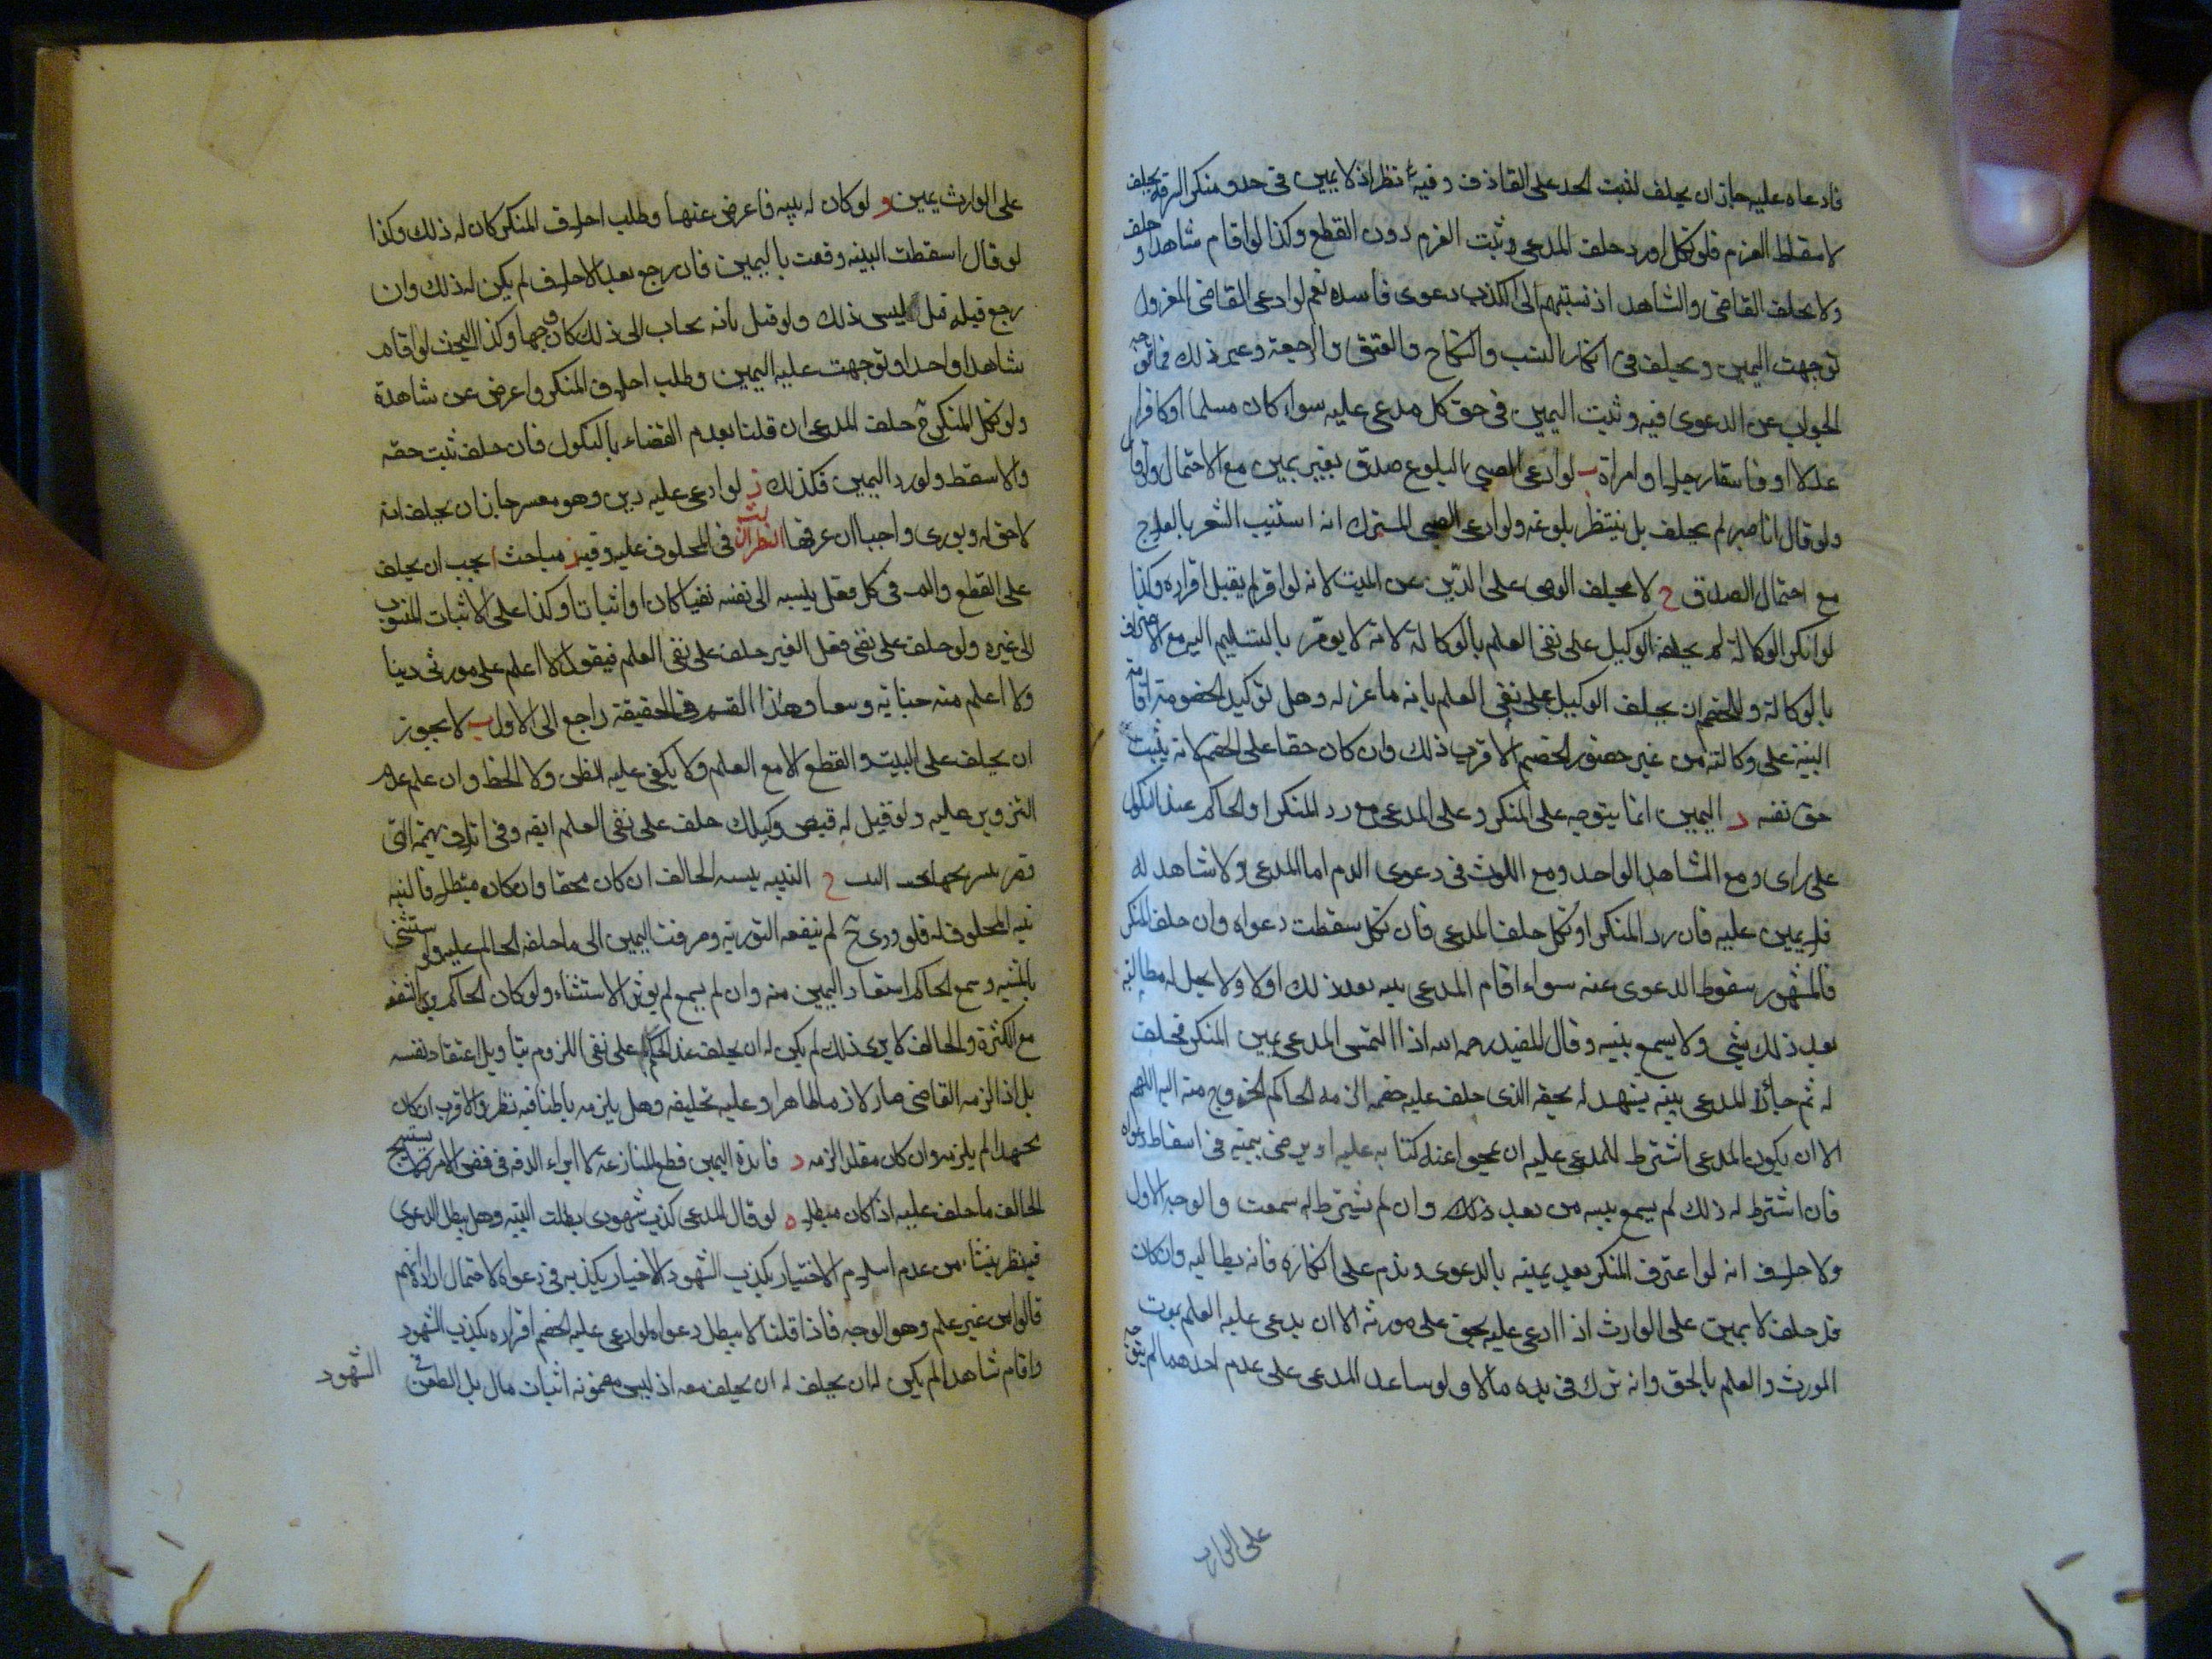 فادعاه عليه جاز ان يحلف لثبت الحد على القاذف وفيه نظر اذ لا يمين فى حد ومنكر السرقة يحلف
لاسقاط الغرم فلو نكل او رد حلف المدعى وثبت الغرم دون القطع وكذا لو اقام شاهدا وحلف
ولا يحلف القاضى والشاهد اذ نسبتهم الى الكذب دعوى فاسده نعم لو ادعى القاضى المعزول
توجهت اليمين ويحلف فى انكار النسب والنكاح والعتق والرجعة وغير ذلك فما توجه
الجواب عن الدعوى فيه وثبت اليمين فى حق كل مدعى عليه سواء كان مسلما او كافرا
عدلا او فاسقا رجلا او امراة ب لو ادعى الصبى البلوغ صدق بغير يمين مع الاحتمال
ولو قال انا صبى لم يحلف بل ينتظر بلوغه ولو ادعى الصبى المشرك انه استنبت الشعر بالعلاج
مع احتمال الصدق ج لا يحلف الوصى على الدين عن الميت لانه لو اقر لم يقبل اقراره وكذا
لو انكر الوكالة لم يحلفه الوكيل على نفى العلم بالوكالة لانه لا يومر بالتسليم اليه مع الاعتراف
بالوكالة وللخصم ان يحلف الوكيل على نفى العلم بانه ما عزله وهل لوكيل الخصومة اقامة
البينة على وكالته من غير حضور الخصم الاقرب ذلك وان كان حقا على الخصم لانه يثبت
حق نفسه د اليمين انما يتوجه على المنكر وعلى المدعى مع رد المنكر او الحاكم عند النكول
على راى ومع الشاهد الواحد ومع اللوث فى دعوى الدم اما المدعى ولا شاهد له
فلا يمين عليه فان رد المنكر او نكل حلف المدعى فان نكل سقطت دعواه وان حلف المنكر
فالمشهور سقوط الدعوى عنه سواء اقام المدعى بينه بعد ذلك او لا ولا يحل له مطالبته
بعد ذلك بشئ ولا يسمع بينيه وقال المفيد رحمه الله اذا التمس المدعى يمين المنكر فحلف
له ثم جاء المدعى ببينه يشهد له بحقه الذى حلف عليه خصمه الزمه الحاكم الخروج منه اليه اللهم
الا ان يكون المدعى اشترط للمدعى عليه ان يمحوا عنه كتابه عليه او يرضى بيمينه فى اسقاط دعواه
فان اشترط له ذلك لم يسمع بينه من بعد ذلك وان لم يشترط له سمعت والوجه الاول
ولا خلاف انه لو اعترف المنكر بعد يمينه بالدعوى وندم على انكاره فانه يطالبه وان كان
قد حلف لا يمين على الوارث اذا ادعى عليه بحق على مورثه الا ان يدعى عليه العلم بموت
المورث والعلم بالحق وانه ترك فى يده مالا ولو ساعد المدعى على عدم احدهما لم يتوجه
على الوارث
على الوارث يمين و لو كان له بينه فاعرض عنها وطلب احلاف المنكر كان له ذلك وكذا
لو قال اسقطت البينه وقنعت باليمين فان رجع بعد الاحلاف لم يكن له ذلك وان
رجع قبله قيل ليس ذلك ولو قيل بانه يجاب الى ذلك كان وجها وكذا البحث لو اقام
شاهدا واحدا وتوجهت عليه اليمين وطلب احلاف المنكر واعرض عن شاهده
ولو نكل المنكر ح حلف المدعى ان قلنا بعدم القضاء بالنكول فان حلف ثبت حقه
والا سقط ولو رد اليمين فكذلك ز لو ادعى عليه دين وهو معسر جاز ان يحلف انه
لا حق له ويورى واجبا ان عرفها النظر الثالث فى المحلوف عليه وفيه مباحث ا يجب ان يحلف
على القطع والبت فى كل فعل ينسبه الى نفسه نفيا كان او اثباتا وكذا على الاثبات المنسوب
الى غيره ولو حلف على نفى فعل الغير حلف على نفى العلم فيقول لا اعلم على مورثى دينا
ولا اعلم منه جناية وبيعا وهذا القسم فى الحقيقة راجع الى الاول ب لا يجوز
ان يحلف على البت والقطع الا مع العلم ولا يكفى عليه الظن ولا الخط وان علم عدم
التزوير عليه ولو قيل له قبض وكيلك حلف على نفى العلم ايضه وفى اتلاف بهيمته التى
قصر بتسريحها يحلف البت ج النية نية الحالف ان كان محقا وان كان مبطلا فالنيه
نيه المحلوف له فلو ورى ح لم ينفعه التوريه وصرفت اليمين الى ما حلفه الحالم عليه ولو استثنى
بالمشيه وسمع الحاكم استعاد اليمين منه وان لم يسمع لم يوثر الاستثناء ولو كان الحاكم يرى الشفعه
مع الكثرة والحالف لا يرى ذلك لم يكن له ان يحلف عند الحاكم على نفى اللزوم بتاويل اعتقاد نفسه
بل اذا الزمه القاضى صار لازما ظاهرا وعليه تخليفه وهل يلزمه باطنا فيه نظر والاقرب ان كان
مجتهدا لم يلزمه وان كان مقلدا لزمه د فائدة اليمين قطع المنازعة لا ابراء الذمه ففى نفس الامر فلا يستبيح
الحالف ما حلف عليه اذا كان مبطلا ه لو قال المدعى كذب شهودى بطلت البينه وهل يبطل الدعوى
فيه نظر ينشا من عدم استلزام الاختيار بكذب الشهود الاخبار بكذبه فى دعواه لاحتمال ارادة انهم
قالوا من غير علم وهو الوجه فاذا قلنا لا يبطل دعواه لو ادعى عليه الخصم اقراره بكذب الشهود
واقام شاهدا لم يكن له ان يحلف له ان يحلف معه اذ ليس مضمونه اثبات مال بل الطعن فى
الشهود